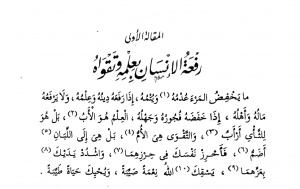 المقالة الأولى
رفعة الإنسان بعلمه وتقواه
ما يخفض المرء عدمه (١) ويتمه، إذا رفعه دينه وعلمه، ولا يرفعه
ماله وأهله، إذا خفضه فجوره وجهله، العلم هو الأب (٢)، بل هو
للثأي أرأب (٣)، والتقوى هي الأم (٤)، بل هي إلى اللبان (٥)
أضم (٦)، فأحرز نفسك في حرزهما (٧)، واشدد يديك (٨)
بغرزهما (٩)، يسقك (١٠) الله نعمة صيبة، ويحيك حياة طيبة